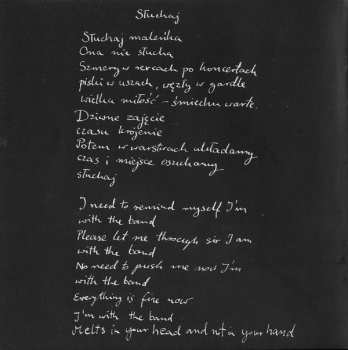 Słuchaj
Słuchaj maleńka
Ona nie słucha
Szmery w sercach po koncertach
piski w uszach, węzły w gardle
wielka miłość – śmiechu warte.
Dziwne zajęcie
czasu krojenie
Potem w warstwach układamy
czas i miejsce oszukamy
słuchaj
I need to remind myself I'm
with the band
Please let me through sir I am
with the band
No need to push me now I'm
with the band
Everything is fine now
I'm with the band
Melts in your head and not in your hand